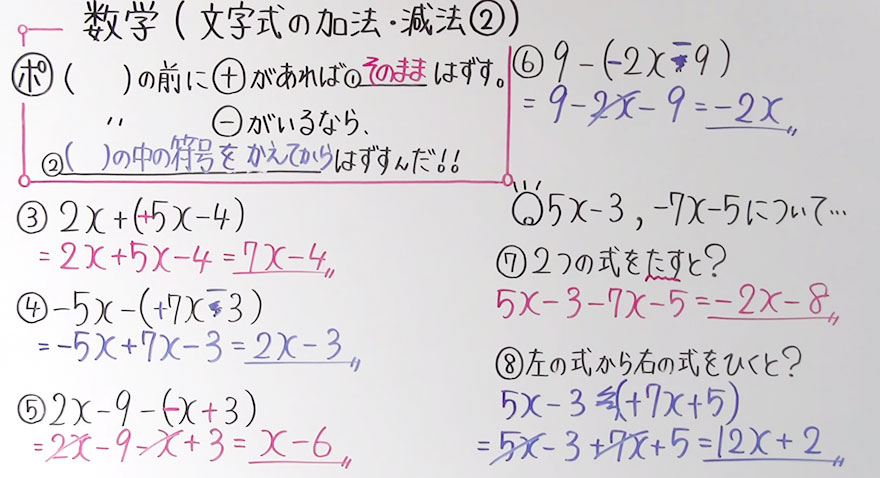 数学(文字式の加法・減法②)
ポ ( )の前に⊕があれば①そのままはずす。
〃 ⊖がいるなら、
②( )の中の符号をかえてからはずすんだ!!
③ 2x+(+5x-4)
=2x+5x-4=7x-4〃
④ -5x-(+7x-3)
=-5x+7x-3=2x-3〃
⑤ 2x-9-(-x+3)
=2x-9-x+3=x-6〃
⑥ 9-(-2x-9)
=9-2x-9=-2x〃
5x-3, -7x-5について…
⑦ 2つの式をたすと?
5x-3-7x-5=-2x-8〃
⑧ 左の式から右の式をひくと?
5x-3 (+7x+5)
=5x-3+7x+5=12x+2〃